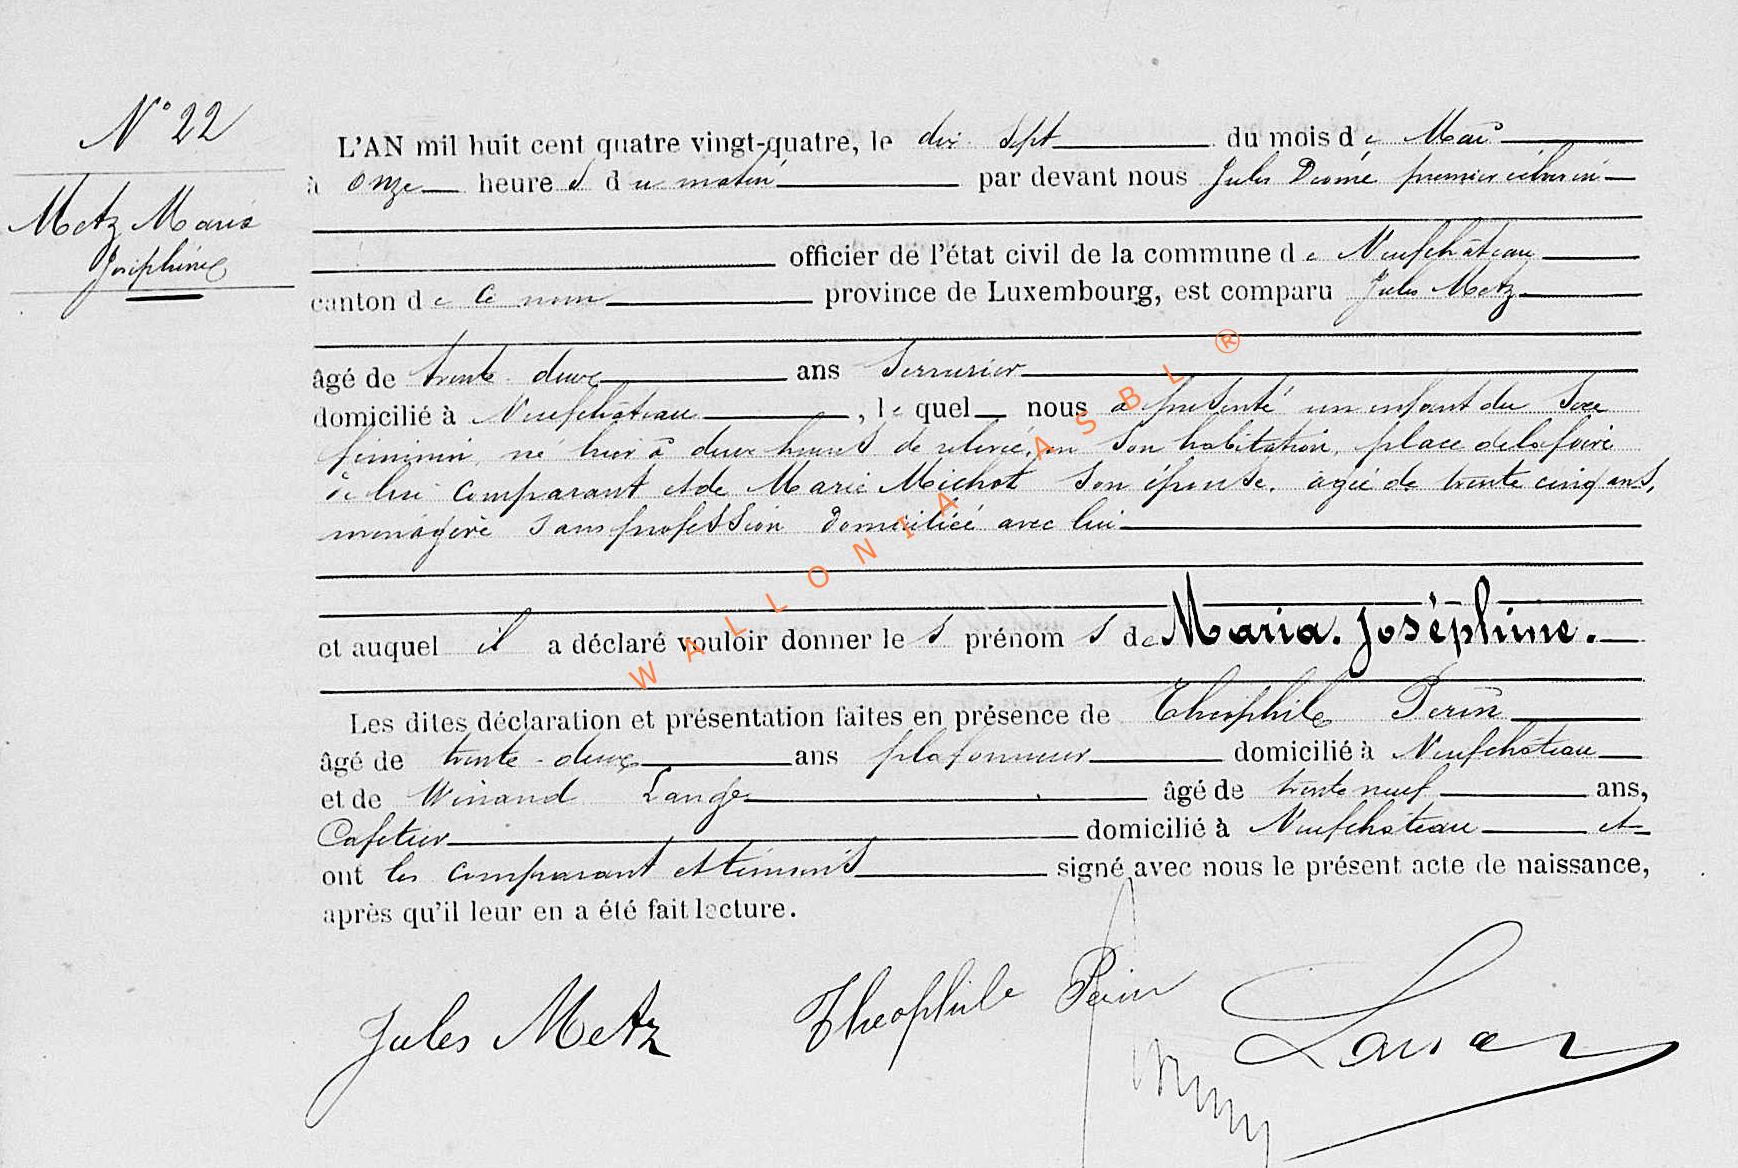 N° 22
Metz Maria
Joséphine
L'AN mil huit cent quatre vingt-quatre, le dix sept du mois de Mars
à onze heures du matin par devant nous Jules premier échevin
officier de l'état civil de la commune de Neufchâteau
canton de ce nom province de Luxembourg, est comparu Jules Metz
âgé de trente deux ans Serrurier
domicilié à Neufchâteau, lequel nous a présenté un enfant du sexe
féminin, né hier à deux heures de relevée, en son habitation, place de la foire
de lui comparant et de Marie Michot son épouse, agée de trente cinq ans,
ménagère sans profession domiciliée avec lui
et auquel il a déclaré vouloir donner les prénoms de Maria. Joséphine.
Les dites déclaration et présentation faites en présence de Théophile Perin
âgé de trente-deux ans plafonneur domicilié à Neufchâteau
et de Winand Lange âgé de trente neuf ans,
Cafetier domicilié à Neufchâteau et
ont les comparant et témoins signé avec nous le présent acte de naissance,
après qu'il leur en a été fait lecture.
Jules Metz Théophile Perin
WALLONIA ASBL ®